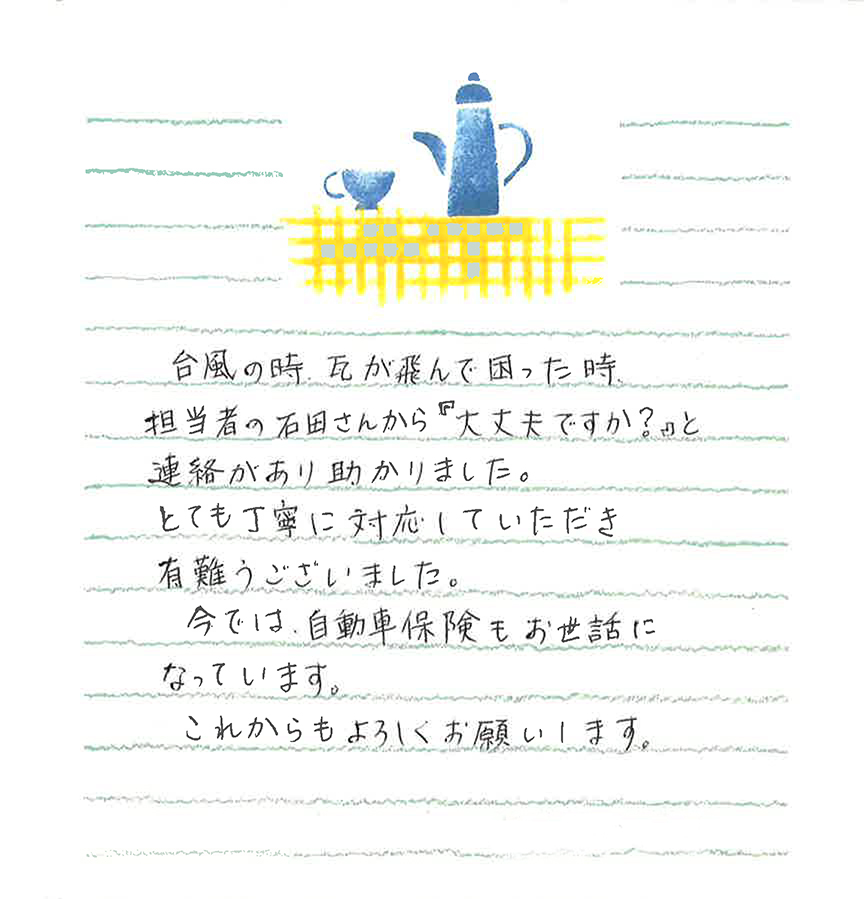 台風の時、瓦が飛んで困った時、
担当者の石田さんから『大丈夫ですか?』と
連絡があり助かりました。
とても丁寧に対応していただき
有難うございました。
今では、自動車保険もお世話に
なっています。
これからもよろしくお願いします。